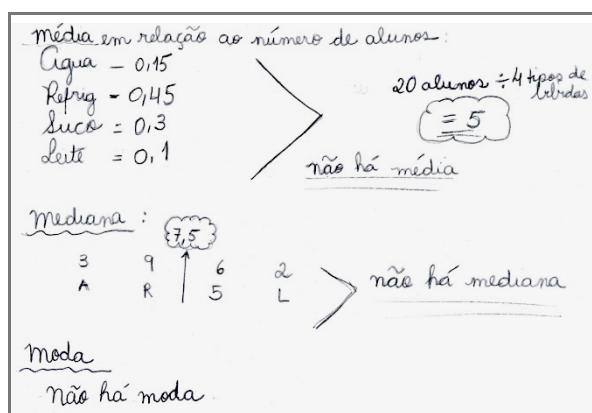 média em relação ao número de alunos:
Água - 0,15
Refrig - 0,45
Suco = 0,3
Leite = 0,1
20 alunos ÷ 4 tipos de bebidas
= 5
não há média
Mediana :
7,5
3 9 6 2
A R S L
não há mediana
Moda
Não há moda